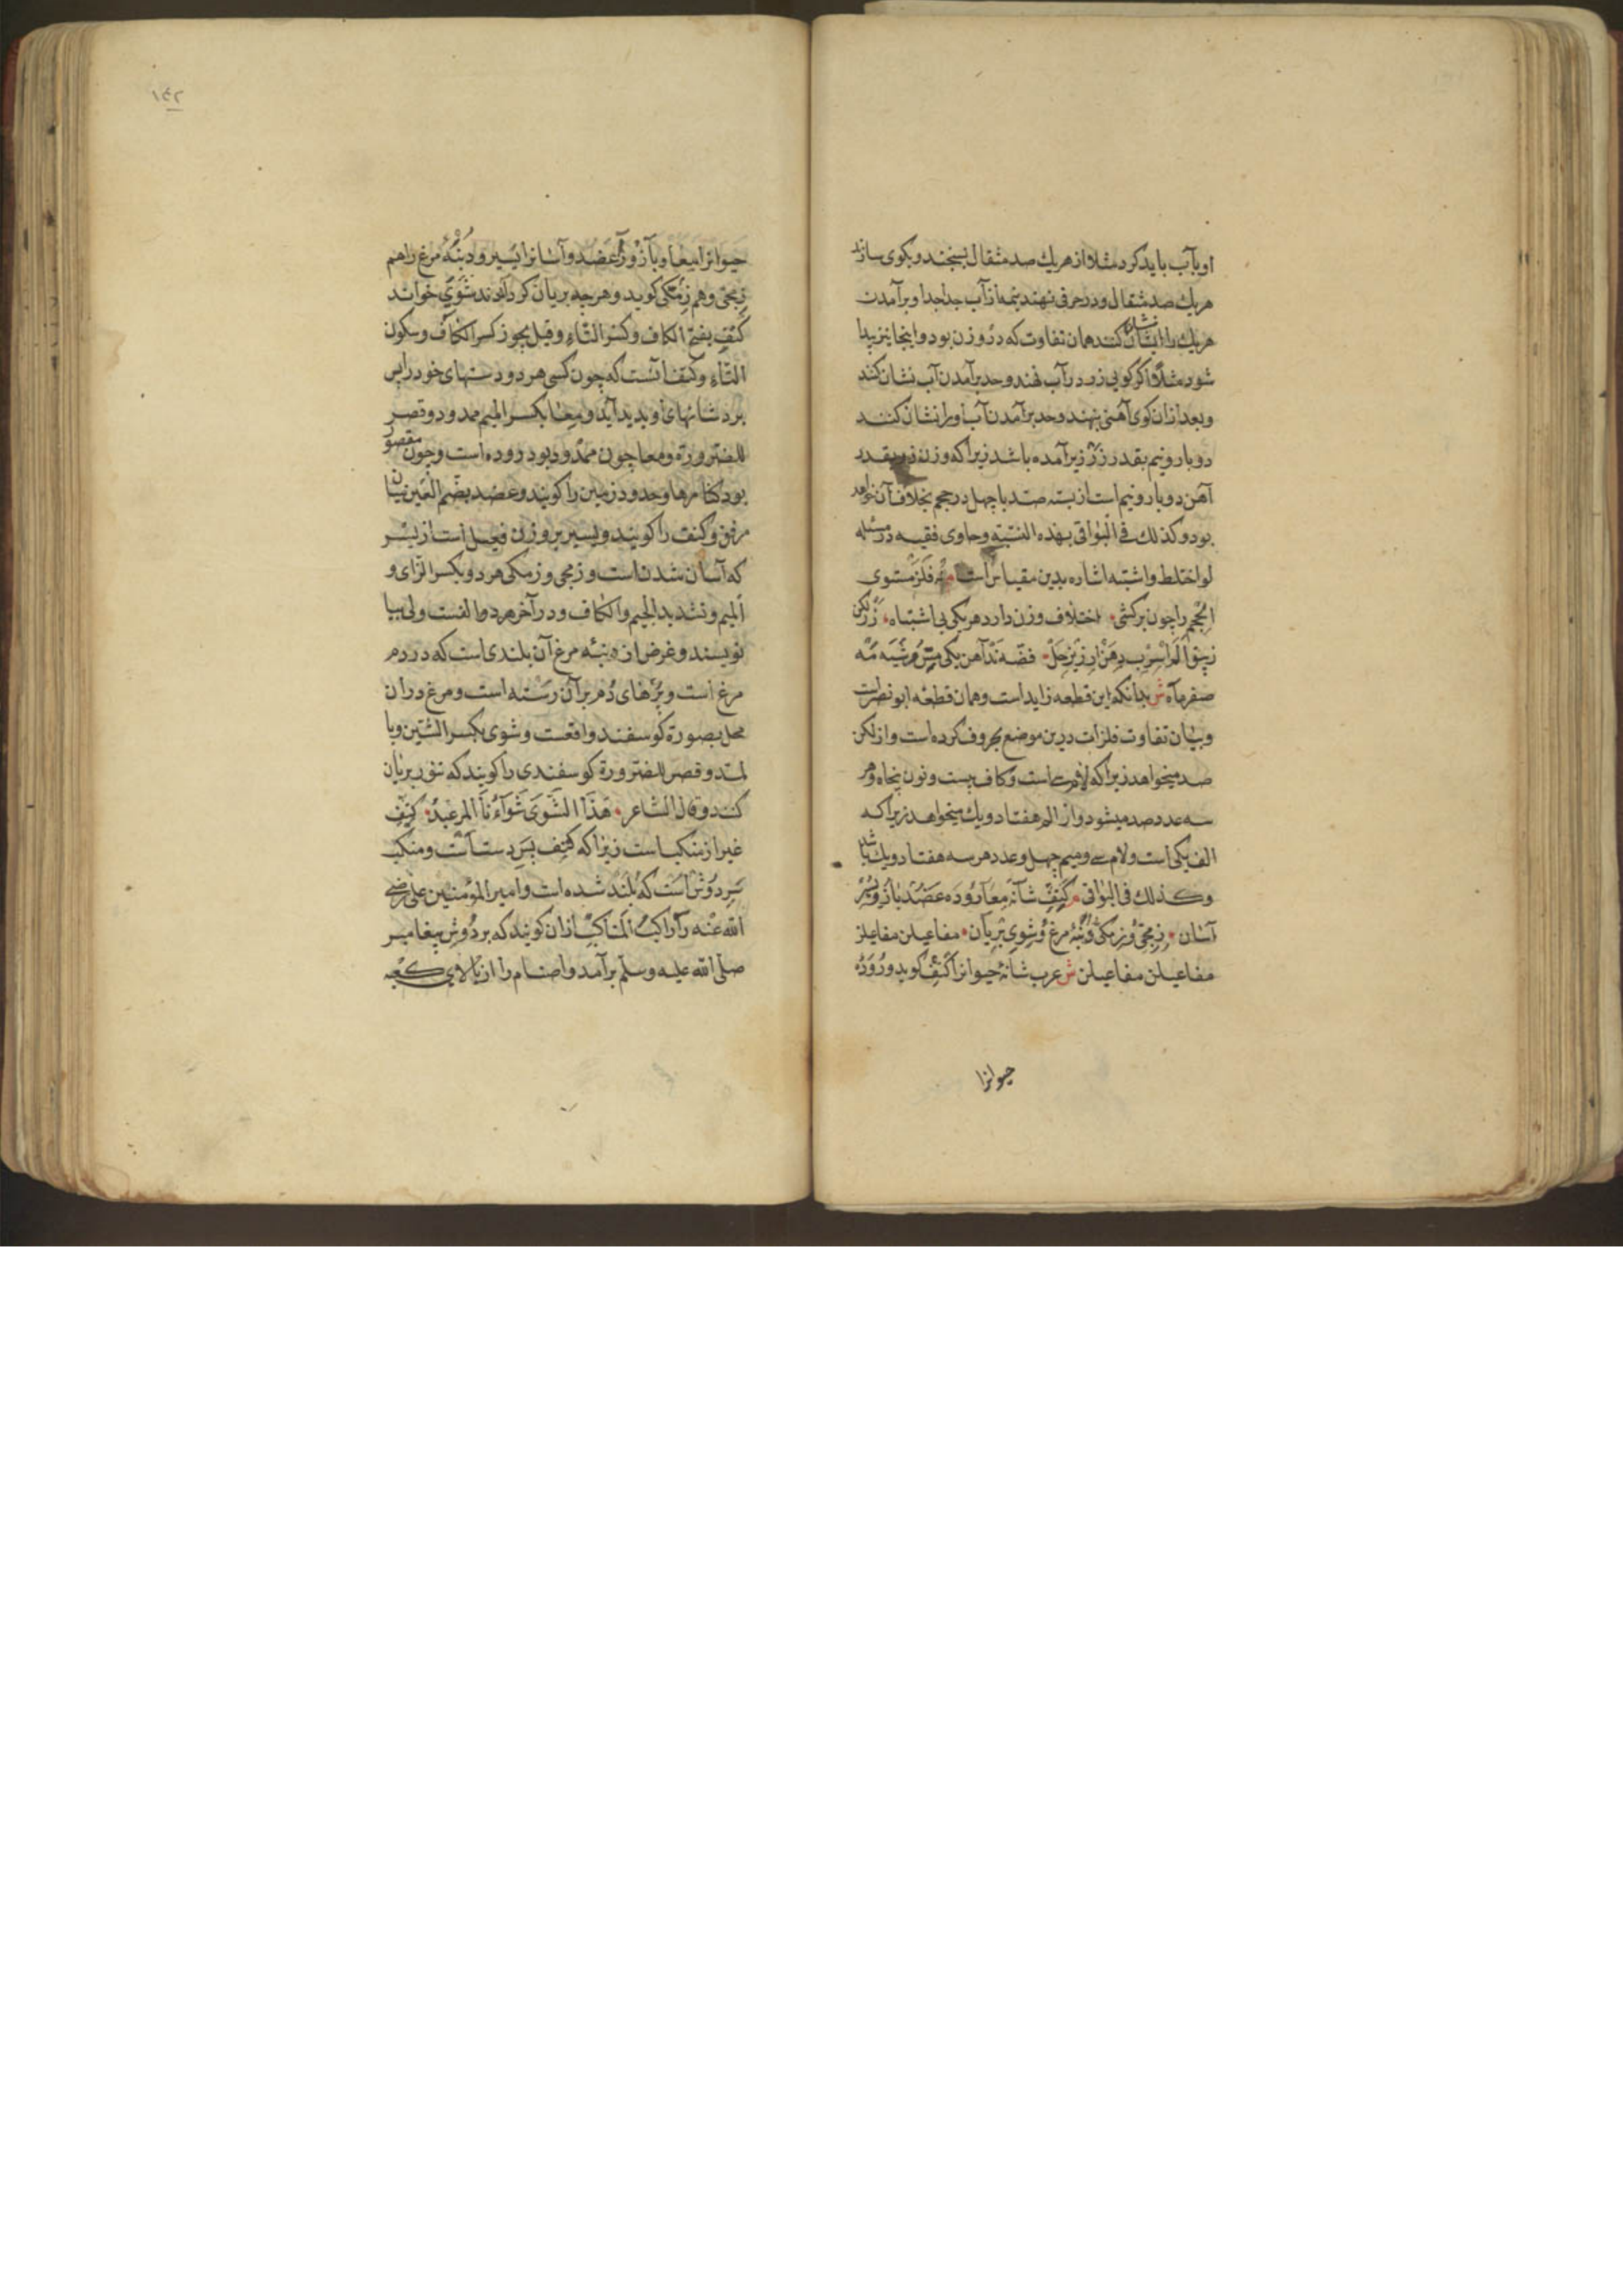 او بآب باید کرد مثلا از هریك صد مثقال بسنجند و بکوی سازند
هریك صد مثقال و در حرفی نهند نیمه از آب جداجدا و برآمدن
هریك را نشان کنند همان تفاوت که در وزن بود و اینجا نیز پیدا
شود مثلاً اکر کویی زر در آب نهند و حد برآمدن آب نشان کنند
و بعد ازان کوی آهنی نهند و حد برآمدن آب او را نشان کنند
دو بار و نیم بقدر زر زیر آمده باشد زیرا که وزن زر بقدر
آهن دو بار و نیم است از بسته صد با چهل در حجم بخلاف آن خواهد
بود و کذلك فی البواقی بهذه النسبة و حاوی فقیه در مسئله
لو اختلط و اشتبه اشاره بدین مقیاس است نه فلز مستوی
الحجم را چون برکشی اختلاف وزن دارد هریکی بی اشتباه زر لکن
زیبق الم اسرب دهن ارزیز حل فضه ند آهن یکی مس و شبه مه
صفر ماه ش بدانکه این قطعه زاید است و همان قطعه ابو نصر است
و بیان تفاوت فلزات درین موضع بحروف کرده است و از لکن
صد میخواهد زیرا که لام سی است و کاف بیست و نون پنجاه و هر
سه عدد صد میشود و از الم هفتاد و یك میخواهد زیرا که
الف یکی است و لام سی و میم چهل و عدد هر سه هفتاد و یك باشد
و کذلك فی البواقی کَتِف شانه مِعا روده عَضُد بازو یسیر
آسان زِمِجّی و زمکی دُنبهٔ مرغ و شوی بریان مفاعیلن مفاعیلن
مفاعیلن مفاعیلن ش عرب شانهٔ حیوانرا کتف کوید و رُودَهٔ
حیوانرا
١٤٢
حیوانرا مِعا و بازو را عَضُد و آسانرا یسیر و دنبهٔ مرغ را هم
زِمِجّی و هم زِمِکّی کوید و هرچه بریان کرداند شوی خوانند
کتف بفتح الکاف و کسر التاء و قیل یجوز کسر الکاف و سکون
التاء و کتف آنست که چون کسی هر دو دستهای خود را پس
برد شانهای او بدید آید و معا بکسر المیم ممدود و قصر
للضرورة و معا چون ممدود بود روده است و چون مقصور
بود کنارها و حدود زمین را کویند و عضد بضم الغین میان
مرفق و کتف را کویند و یسیر بر وزن فعیل است از یسر
که آسان شدنست و زمجی و زمکی هر دو بکسر الزای و
المیم و تشدید الجیم و الکاف و در آخر هر دو الفست ولی بیا
نویسند و غرض از دنبهٔ مرغ آن بلندی است که در دم
مرغ است و پرهای دُم بر آن رسته است و مرغ دران
محل بصورة کوسفند واقعست و شوی بکسر الشین و با
لمد و قصر للضرورة کوسفندی را کویند که تنور بریان
کنند و قال الشاعر هَذَا الشَّوَی شواءُنَا المرعبدُ کتف
غیر از منکب است زیرا که کتف پس دست است و منکب
سر دوش است که بلند شده است و امیر المؤمنین علی رضی
الله عنه را راکب المناکب ازان کویند که بر دوش پیغامبر
صلی الله علیه وسلم برآمد و اصنام را از بالای کعبه